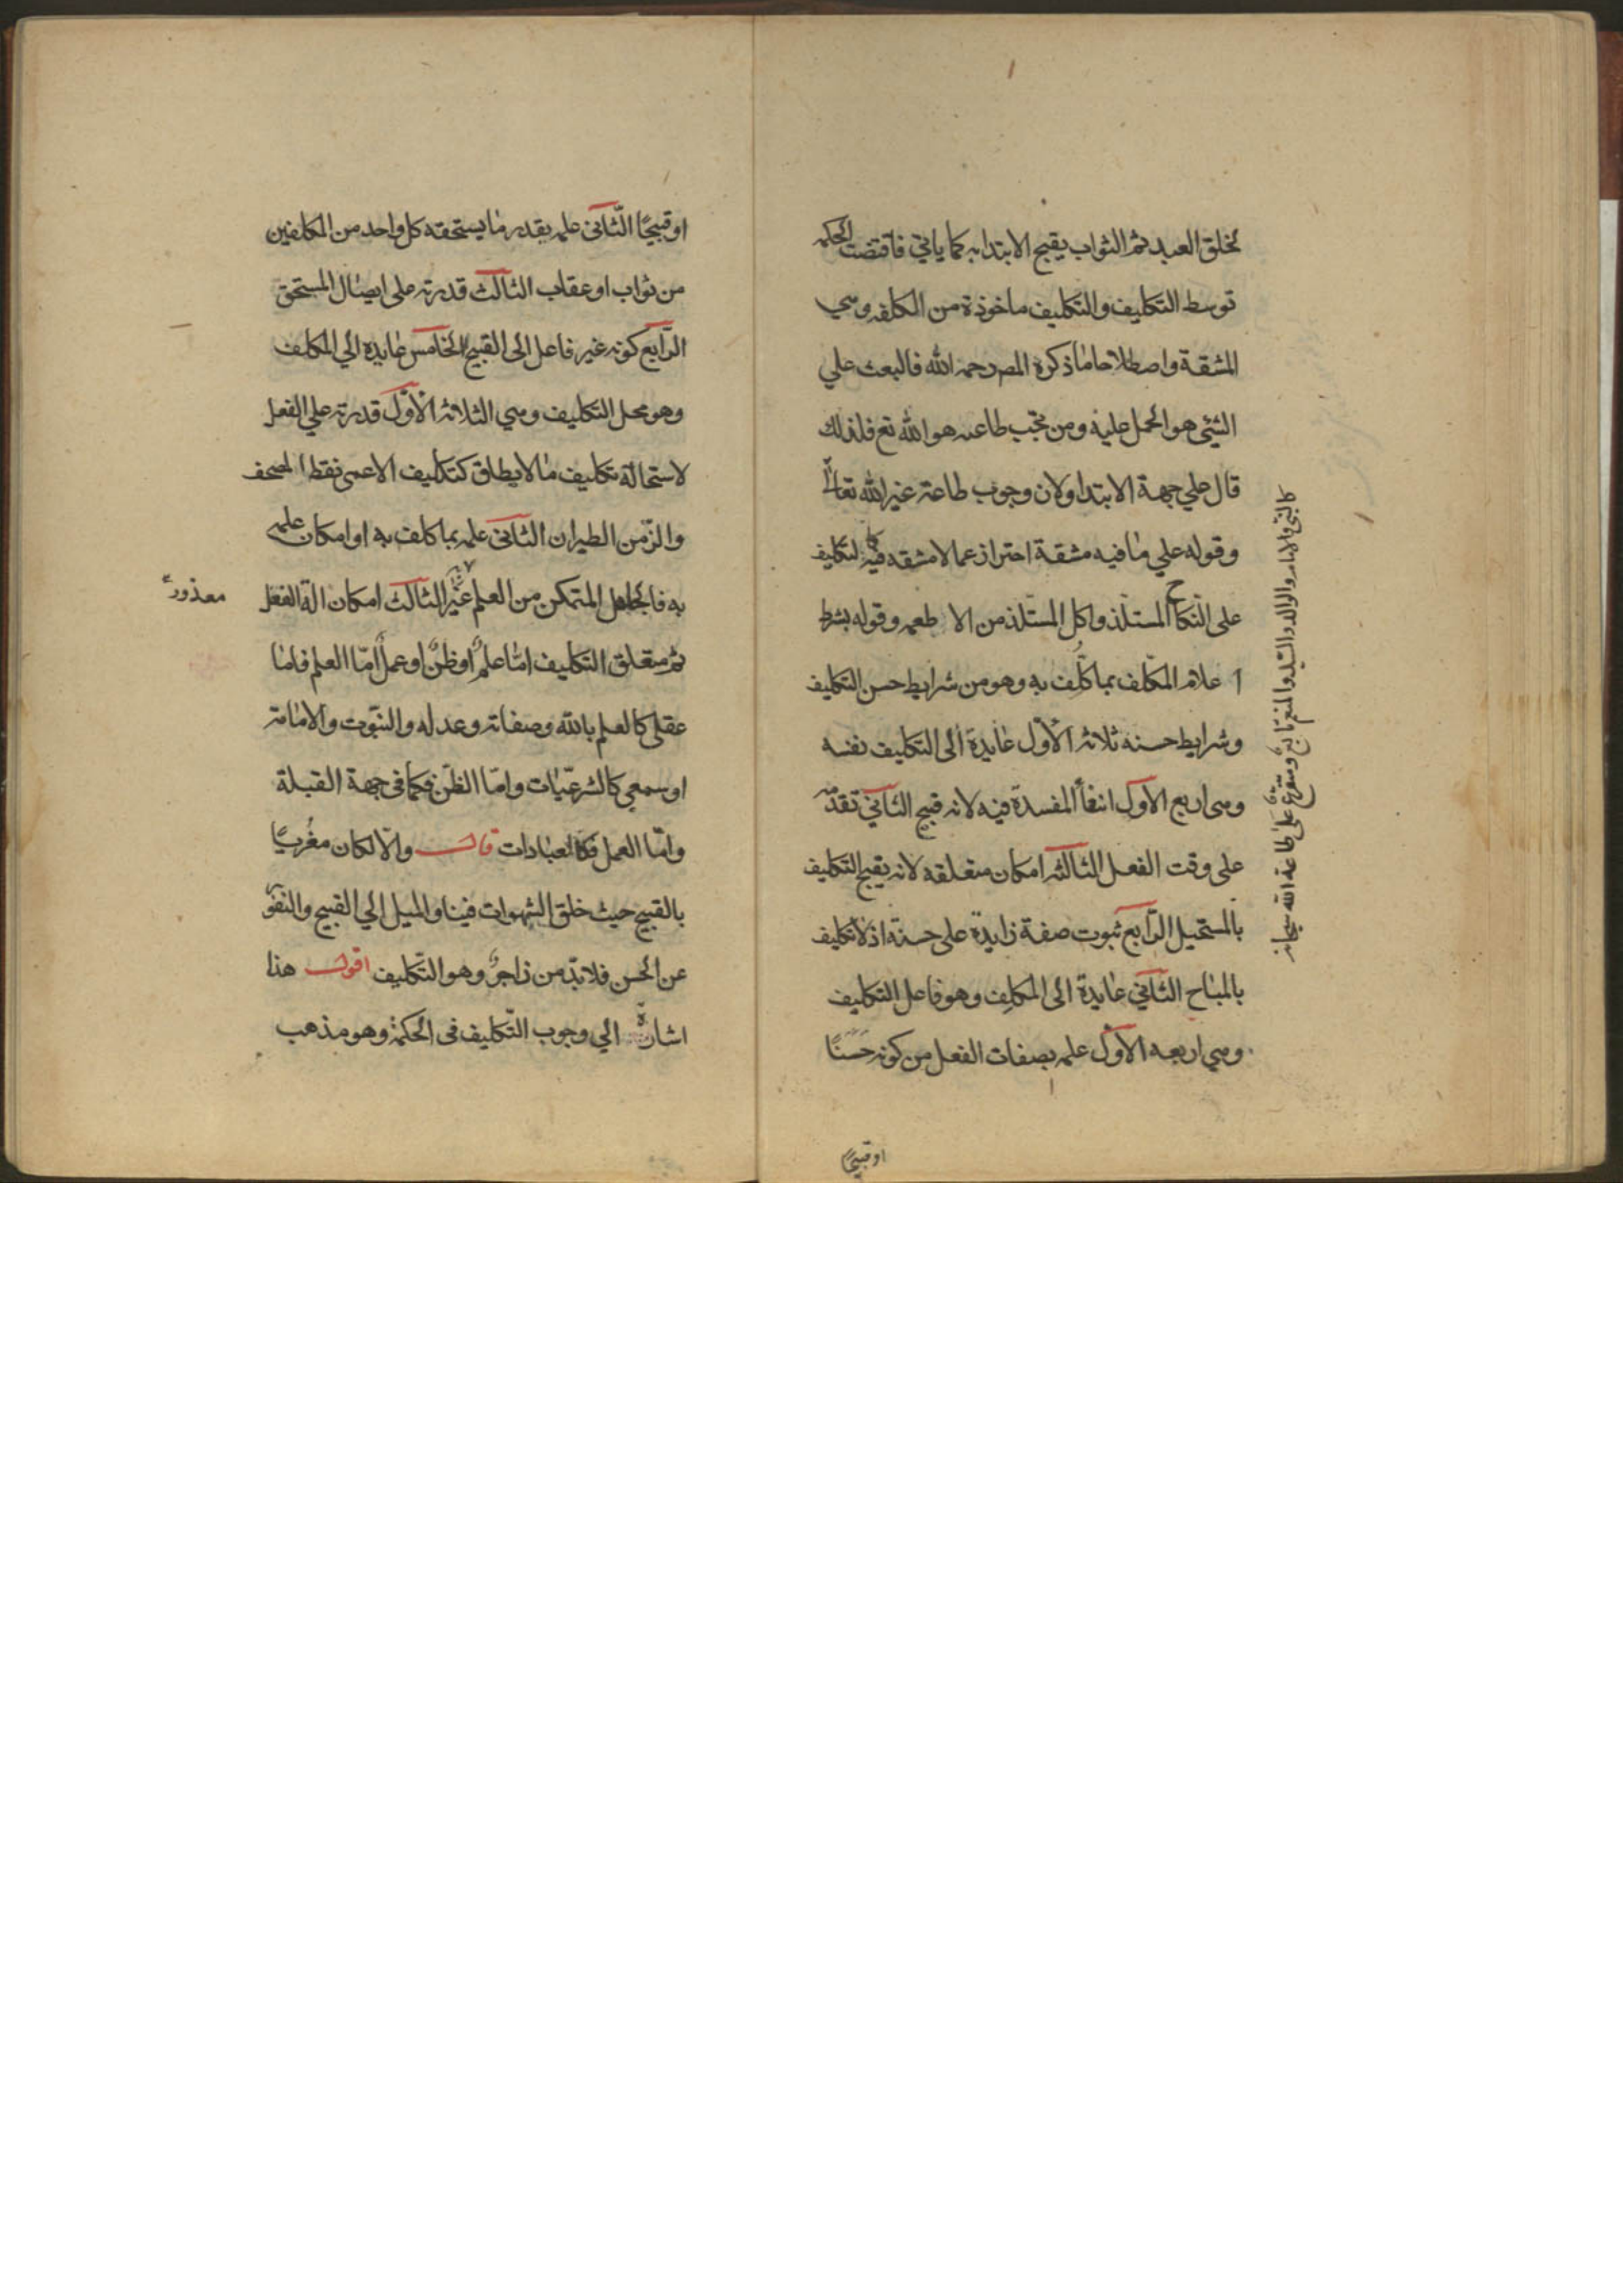 لخلق العبد ثم الثواب يقبح الابتدا به كما ياتي فاقتضت الحكمه
توسط التكليف والتكليف ماخوذة من الكلفه وهي
المشقة واصطلاحا ما ذكره المص رحمه الله فالبعث علي
الشيئ هو الحمل عليه ومن تجب طاعته هو الله تع فلذلك
قال علي جهة الابتدا ولان وجوب طاعة غير الله تعالى
كالنبي والامام والوالد والسيد والمنعم تابع ومتفرع على طاعة الله سبحانه
وقوله علي ما فيه مشقة احتراز عما لا مشقه فيه كالتكليف
على النكاح المستلذ واكل المستلذ من الاطعمه وقوله بشرط
اعلام المكلف بما كلف به وهو من شرايط حسن التكليف
وشرايط حسنه ثلاثه الاول عايدة الى التكليف نفسه
وهي اربع الاول انتفأ المفسدة فيه لانه قبيح الثاني تقدمه
على وقت الفعل الثالثه امكان متعلقه لانه يقبح التكليف
بالمستحيل الرابع ثبوت صفة زايدة على حسنه اذ لا تكليف
بالمباح الثاني عايدة الى المكلِف وهو فاعل التكليف
وهي اربعه الاول علمه بصفات الفعل من كونه حَسَنًا
او قبيحًا
او قبيحًا الثاني علمه بقدر ما يستحقه كل واحد من المكلفين
من ثواب او عقاب الثالث قدرته على ايصال المستحق
الرابع كونه غير فاعل الى القبيح الخامس عايدة الي المكلف
وهو محل التكليف وهي الثلاثه الاول قدرته علي الفعل
لاستحالة تكليف ما لا يطاق كتكليف الاعمى نقط المصحف
والزّمن الطيران الثاني علمه بما كلف به او امكان علمه
به فالجاهل المتمكن من العلم غير الثالث امكان الة الفعل
معذور
ثم متعلق التكليف امّا علمٌ او ظنٌّ او عملٌ امّا العلم فاما
عقلى كالعلم بالله وصفاته وعدله والنبّوت والامامة
او سمعي كالشرعيّات وامّا الظنّ فكما فى جهة القبلة
وامّا العمل فكالعبادات قال والّا لكان مغريًا
بالقبيح حيث خلق الشهوات فينا والميل الي القبيح والنفور
عن الحسن فلا بدّ من زاجرٍ وهو التّكليف اقول هذا
اشارة الي وجوب التّكليف فى الحكمة وهو مذهب